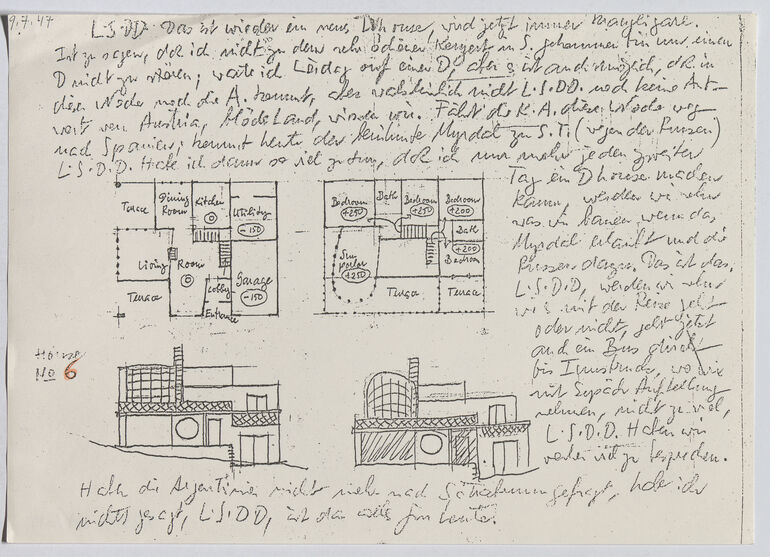 9.7.47
L.S.D.D. Das ist wieder ein neues Dhouse, wird jetzt immer
Ist zu sagen, daß ich nicht zu dem sehr schönen Konzert in S. gekommen bin um einen
D nicht zu stören; warte ich Leider auf einen D, aber es ist auch möglich, daß in
der Woche noch die A. kommt, aber wahrscheinlich nicht L.S.DD. noch keine Ant-
wort von Austria, blödes Land, wieder ein. Fährt die K.A. diese Woche weg
nach Spanien; kommt heute der berühmte Myrdal zu S.T. (wegen der Russen)
L.S.D.D. Habe ich dann so viel zu tun, daß ich nur mehr jeden zweiten
Tag ein Dhouse machen
kann, werden wir sehr
was wir bauen wenn das
Myrdal erlaubt und die
Russen dazu. Das ist das.
L.S.D.D. werden wir sehr
wie es mit der Reise geht
oder nicht, geht jetzt
auch ein Bus direkt
bis Innsbruck, wo wir
mit Gepäck Aufstellung
nehmen, nicht zu viel,
L.S.D.D. Haben wir
vieles zu besprechen.
Terrace
Dining Room
Kitchen
Utility
-150
Living Room
Garage
-150
Lobby
Terrace
Entrance
Bedroom
+250
Bath
Bedroom
+250
Bedroom
+200
Bath
+200
Bedroom
Sun parlor
+250
Terrace
Terrace
House
No 6
Haben die Argentinier nicht mehr nach gefragt, habe ich
nichts gesagt, L.S.DD, ist das alles für heute.